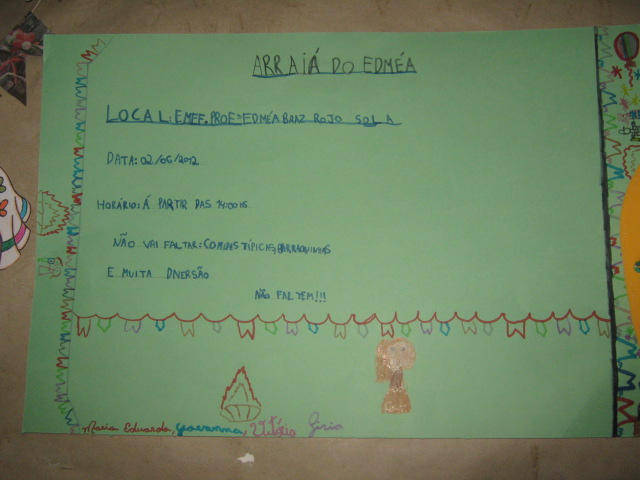 ARRAIÁ DO EDMÉA
LOCAL: EMEF. PROFª EDMÉA BRAZ ROJO SOLA
DATA: 02/06/2012
HORÁRIO: Á PARTIR DAS 14:00 HS
NÃO VAI FALTAR: COMIDAS TÍPICAS, BARRAQUINHAS
E MUITA DIVERSÃO
NÃO FALTEM!!!
Maria Eduarda, Geovanna, Vitória